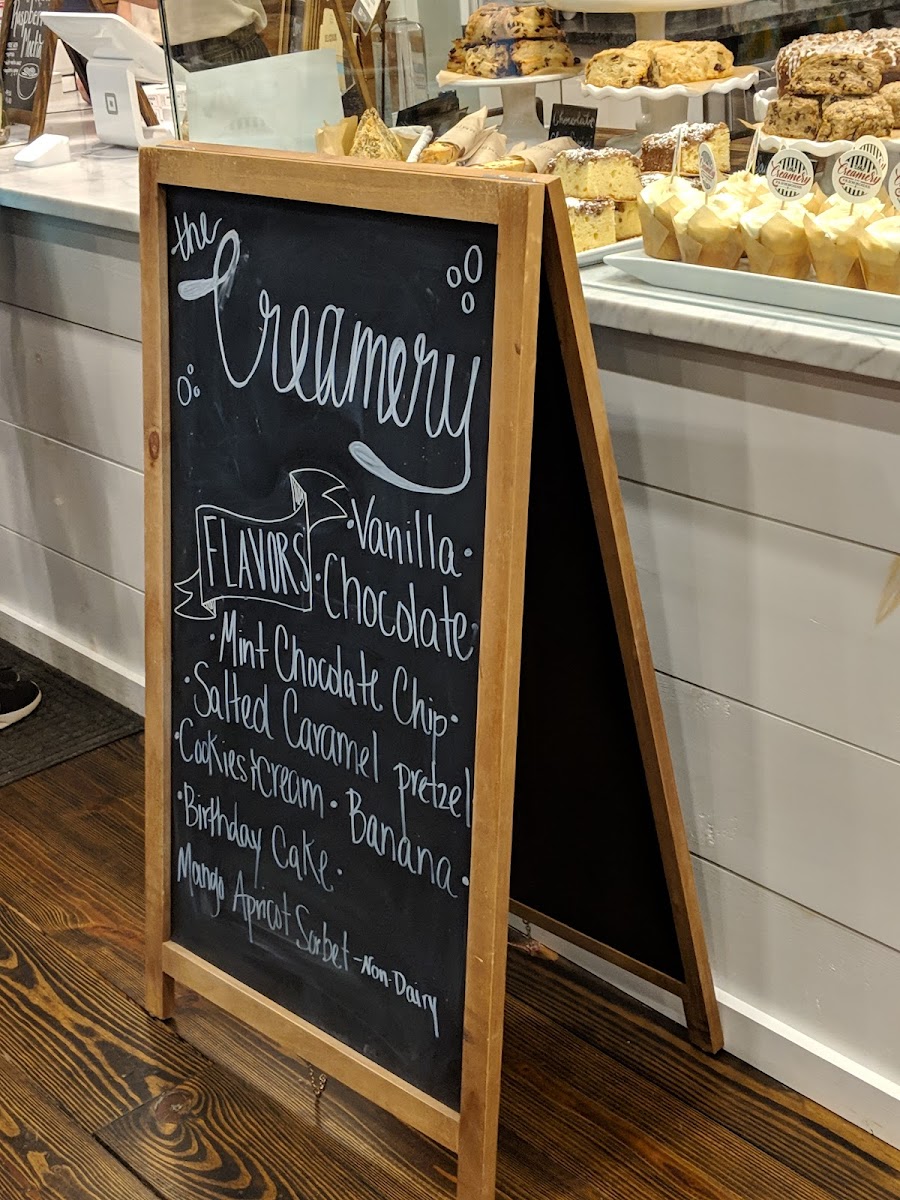 the
Creamery
FLAVORS
• Vanilla •
• Chocolate
• Mint Chocolate Chip •
• Salted Caramel pretzel
• Cookies & Cream • Banana •
• Birthday Cake •
Mango Apricot Sorbet - Non-Dairy
Raspberry
Chocolate
Creamery
Creamery